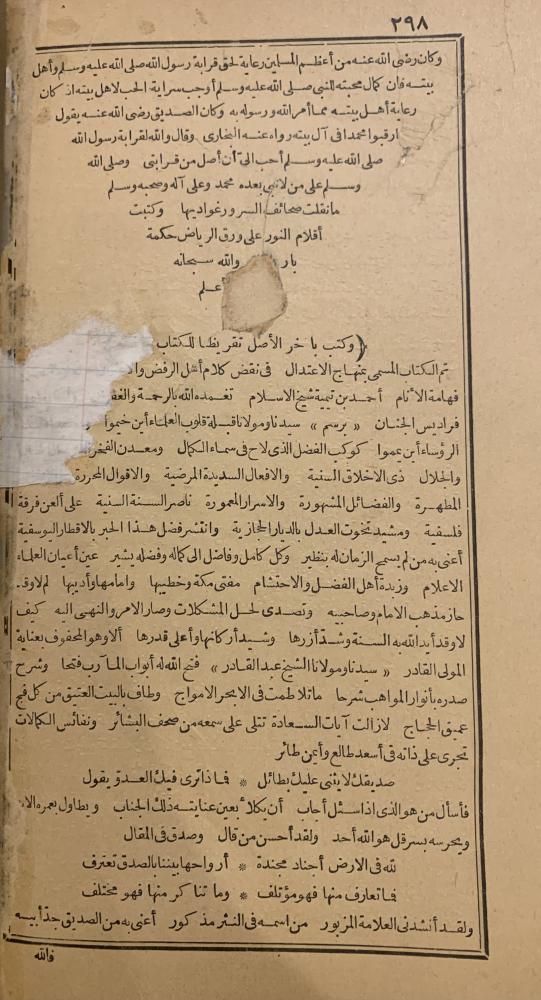 ٢٩٨
وكان رضى الله عنه من أعظم المسلمين رعاية لحق قرابة رسول الله صلى الله عليه وسلم وأهل
بيته فان كمال محبته للنبى صلى الله عليه وسلم أوجب سراية الحب لاهل بيته اذ كان
رعاية أهل بيته مما أمر الله ورسوله به وكان الصديق رضى الله عنه يقول
ارقبوا محمدا فى آل بيته رواه عنه البخارى وقال والله لقرابة رسول الله
صلى الله عليه وسلم أحب الىّ أن أصل من قرابتى وصلى الله
وسلم على من لا نبى بعده محمد وعلى آله وصحبه وسلم
ما نقلت صحائف السرور غواديها وكتبت
أقلام النور على ورق الرياض حكمة
بار والله سبحانه
أعلم
(وكتب بآخر الأصل تقريظا للكتاب
تم الكتاب المسمى بمنهاج الاعتدال فى نقض كلام أهل الرفض وا
فهامة الأنام أحمد بن تيمية شيخ الاسلام تغمده الله بالرحمة والغف
فراديس الجنان « برسم » سيدنا ومولانا قبلة قلوب العلماء أين خيموا
الرؤساء أين يمموا كوكب الفضل الذى لاح فى سماء الكمال ومعدن الفخر
والجلال ذى الاخلاق السنية والافعال السديدة المرضية والاقوال المحررة
المطهرة والفضائل المشهورة والاسرار المعمورة ناصر السنة السنية على ألعن فرقة
فلسفية ومشيد تخوت العدل بالديار الحجازية وانتشر فضل هذا الحبر بالاقطار اليوسفية
أعنى به من لم يسمح الزمان له بنظير وكل كامل وفاضل الى كماله وفضله يشير عين أعيان العلماء
الاعلام وزبدة أهل الفضل والاحتشام مفتى مكة وخطيبها وامامها وأديبها لم لا وقد
حاز مذهب الامام وصاحبيه وتصدى لحل المشكلات وصار الامر والنهى اليه كيف
لا وقد أيد الله به السنة وشد أزرها وشيد أركانها وأعلى قدرها ألا وهو المحفوف بعناية
المولى القادر « سيدنا ومولانا الشيخ عبد القادر » فتح الله له أبواب المآرب فتحا وشرح
صدره بأنوار المواهب شرحا ما تلاطمت فى الابحر الامواج وطاف بالبيت العتيق من كل فج
عميق الحجاج لا زالت آيات السعادة تتلى على سمعه من صحف البشائر ونفائس الكمالات
تجرى على ذاته فى أسعد طالع وأيمن طائر
صديقك لا يثنى عليك بطائل * فماذا ترى فيك العدو يقول
فأسأل من هو الذى اذا سئل أجاب أن يكلأ بعين عنايته ذلك الجناب ويطاول بعمره الا
ويحرسه بسر قل هو الله أحد ولقد أحسن من قال وصدق فى المقال
لله فى الارض أجناد مجندة * أرواحها بيننا بالصدق تعترف
فما تعارف منها فهو مؤتلف * وما تناكر منها فهو مختلف
ولقد أنشدنى العلامة المزبور من اسمه فى النثر مذكور أعنى به من الصديق جد أبيه
والله